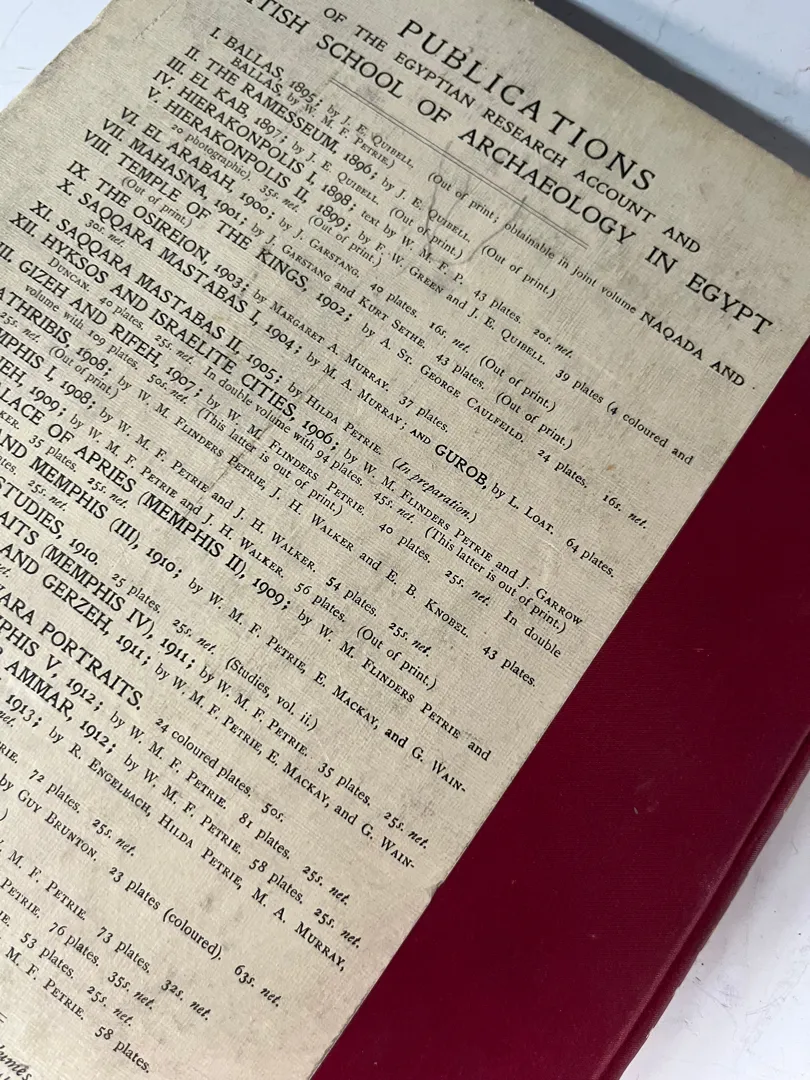 PUBLICATIONS
OF THE EGYPTIAN RESEARCH ACCOUNT AND
TISH SCHOOL OF ARCHAEOLOGY IN EGYPT
I. BALLAS, 1895; by J. E. QUIBELL. (Out of print; obtainable in joint volume NAQADA AND
BALLAS, by W. M. F. PETRIE.)
II. THE RAMESSEUM, 1896; by J. E. QUIBELL. (Out of print.)
III. EL KAB, 1897; by J. E. QUIBELL. (Out of print.)
IV. HIERAKONPOLIS I, 1898; text by W. M. F. P. 43 plates. 20s. net.
V. HIERAKONPOLIS II, 1899; by F. W. GREEN and J. E. QUIBELL. 39 plates (4 coloured and
20 photographic). 35s. net. (Out of print.)
VI. EL ARABAH, 1900; by J. GARSTANG. 40 plates. 16s. net. (Out of print.)
VII. MAHASNA, 1901; by J. GARSTANG and KURT SETHE. 43 plates. (Out of print.)
VIII. TEMPLE OF THE KINGS, 1902; by A. ST. GEORGE CAULFEILD. 24 plates. 16s. net.
(Out of print.)
IX. THE OSIREION, 1903; by MARGARET A. MURRAY. 37 plates.
X. SAQQARA MASTABAS I, 1904; by M. A. MURRAY; AND GUROB, by L. LOAT. 64 plates.
30s. net.
XI. SAQQARA MASTABAS II, 1905; by HILDA PETRIE. (In preparation.)
XII. HYKSOS AND ISRAELITE CITIES, 1906; by W. M. FLINDERS PETRIE and J. GARROW
DUNCAN. 40 plates. 25s. net. In double volume with 94 plates. 45s. net. (This latter is out of print.)
III. GIZEH AND RIFEH, 1907; by W. M. FLINDERS PETRIE. 40 plates. 25s. net. In double
volume with 109 plates. 50s. net. (This latter is out of print.)
ATHRIBIS, 1908; by W. M. FLINDERS PETRIE, J. H. WALKER and E. B. KNOBEL. 43 plates.
25s. net. (Out of print.)
MPHIS I, 1908; by W. M. F. PETRIE and J. H. WALKER. 54 plates. 25s. net.
(Out of print.)
EH, 1909; by W. M. F. PETRIE and J. H. WALKER. 56 plates. (Out of print.)
LACE OF APRIES (MEMPHIS II), 1909; by W. M. FLINDERS PETRIE and
KER. 35 plates. 25s. net.
AND MEMPHIS (III), 1910; by W. M. F. PETRIE, E. MACKAY, and G. WAIN-
ates. 25s. net.
STUDIES, 1910. 25 plates. 25s. net. (Studies, vol. ii.)
AITS (MEMPHIS IV), 1911; by W. M. F. PETRIE. 35 plates. 25s. net.
AND GERZEH, 1911; by W. M. F. PETRIE, E. MACKAY, and G. WAIN-
net.
ARA PORTRAITS. 24 coloured plates. 50s.
PHIS V, 1912; by W. M. F. PETRIE. 81 plates. 25s. net.
AMMAR, 1912; by W. M. F. PETRIE. 58 plates. 25s. net.
1913; by R. ENGELBACH, HILDA PETRIE, M. A. MURRAY,
net.
RIE. 72 plates. 25s. net.
by GUY BRUNTON. 23 plates (coloured). 63s. net.
M. F. PETRIE. 73 plates. 32s. net.
PETRIE. 76 plates. 35s. net.
53 plates. 25s. net.
M. F. PETRIE. 58 plates.